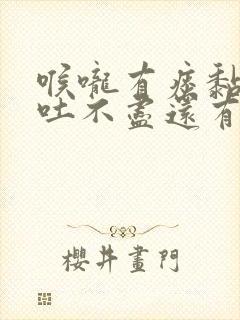 喉嚨有痰黏
吐不盡還有
櫻井畫門